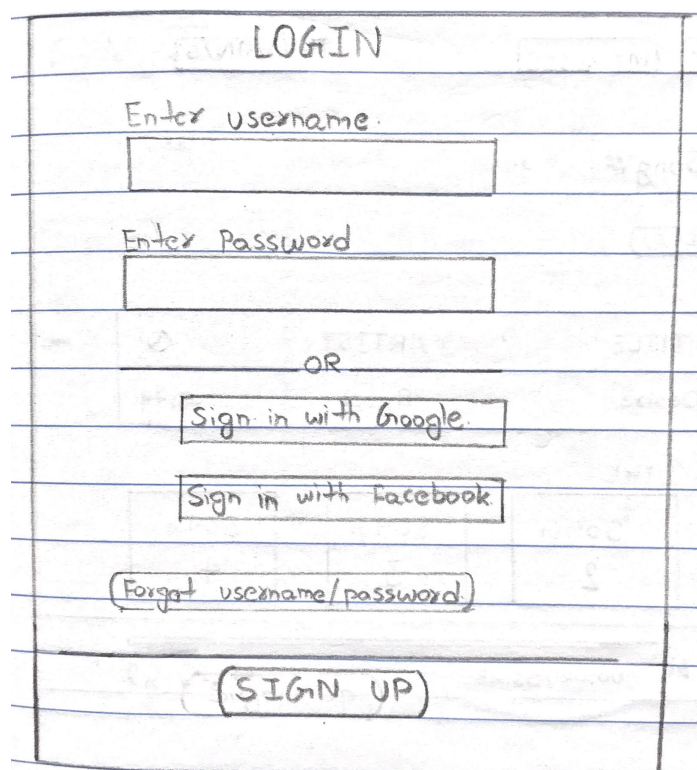 LOGIN
Enter username.
Enter Password
OR
Sign in with Google.
Sign in with Facebook.
Forgot username/password.
SIGN UP